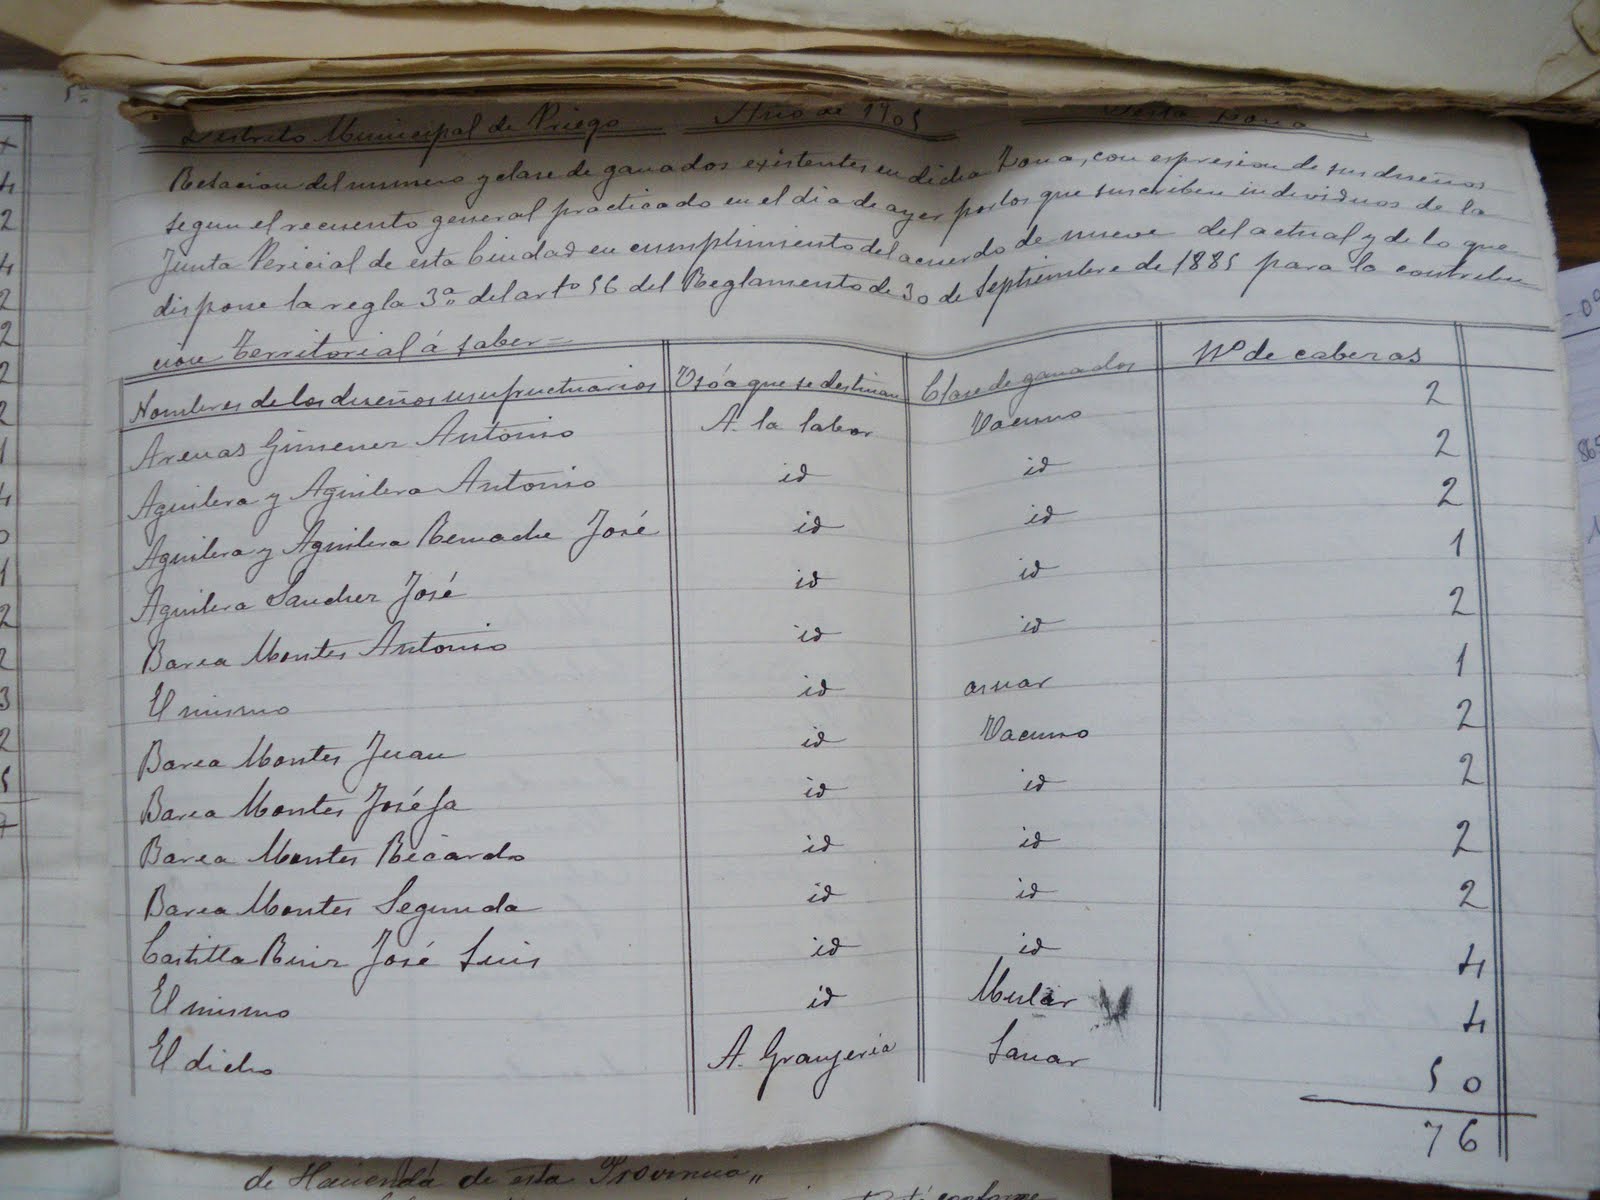 Distrito Municipal de Priego Año de 1905 Sesta Zona
Relacion del numero y clase de ganados existentes en dicha Zona, con espresion de sus dueños
segun el recuento general practicado en el dia de ayer por los que suscriben individuos de la
Junta Pericial de esta Ciudad en cumplimiento del acuerdo de nueve del actual y de lo que
dispone la regla 3ª del artº 56 del Reglamento de 30 de Septiembre de 1885 para la contribu
cion Territorial á saber=
Nombres de los dueños usufructuarios Uso á que se destinan Clase de ganados Nº de cabezas
Arenas Gimenez Antonio A. la labor Vacuno 2
Aguilera y Aguilera Antonio id id 2
Aguilera y Aguilera Remache José id id 2
Aguilera Sanchez José id id 1
Barea Montes Antonio id id 2
El mismo id asnar 1
Barea Montes Juan id Vacuno 2
Barea Montes Joséfa id id 2
Barea Montes Ricardo id id 2
Barea Montes Segunda id id 2
Castilla Ruiz José Luis id id 4
El mismo id Mular 4
El dicho A. Granjeria Lanar 50
76
de Hacienda de esta Provincia"
5ª
4
2
4
2
2
2
2
1
4
0
1
2
2
3
2
5
865